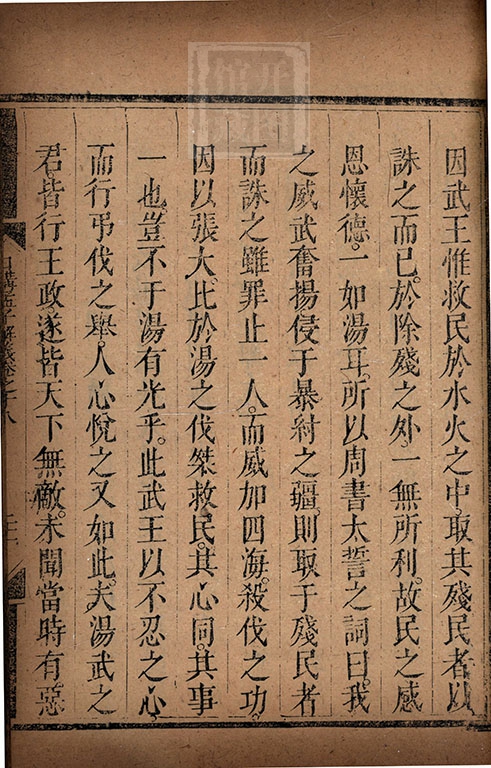 因武王惟救民於水火之中。取其殘民者以
誅之而已。於除殘之外一無所利。故民之感
恩懷德。一如湯耳。所以周書太誓之詞曰。我
之威武奮揚侵于暴紂之疆。則取于殘民者
而誅之雖罪止一人。而威加四海。殺伐之功。
因以張大。比於湯之伐桀救民。其心同。其事
一也。豈不于湯有光乎。此武王以不忍之心。
而行弔伐之舉。人心悅之又如此。夫湯武之
君。皆行王政。遂皆天下無敵。未聞當時有惡